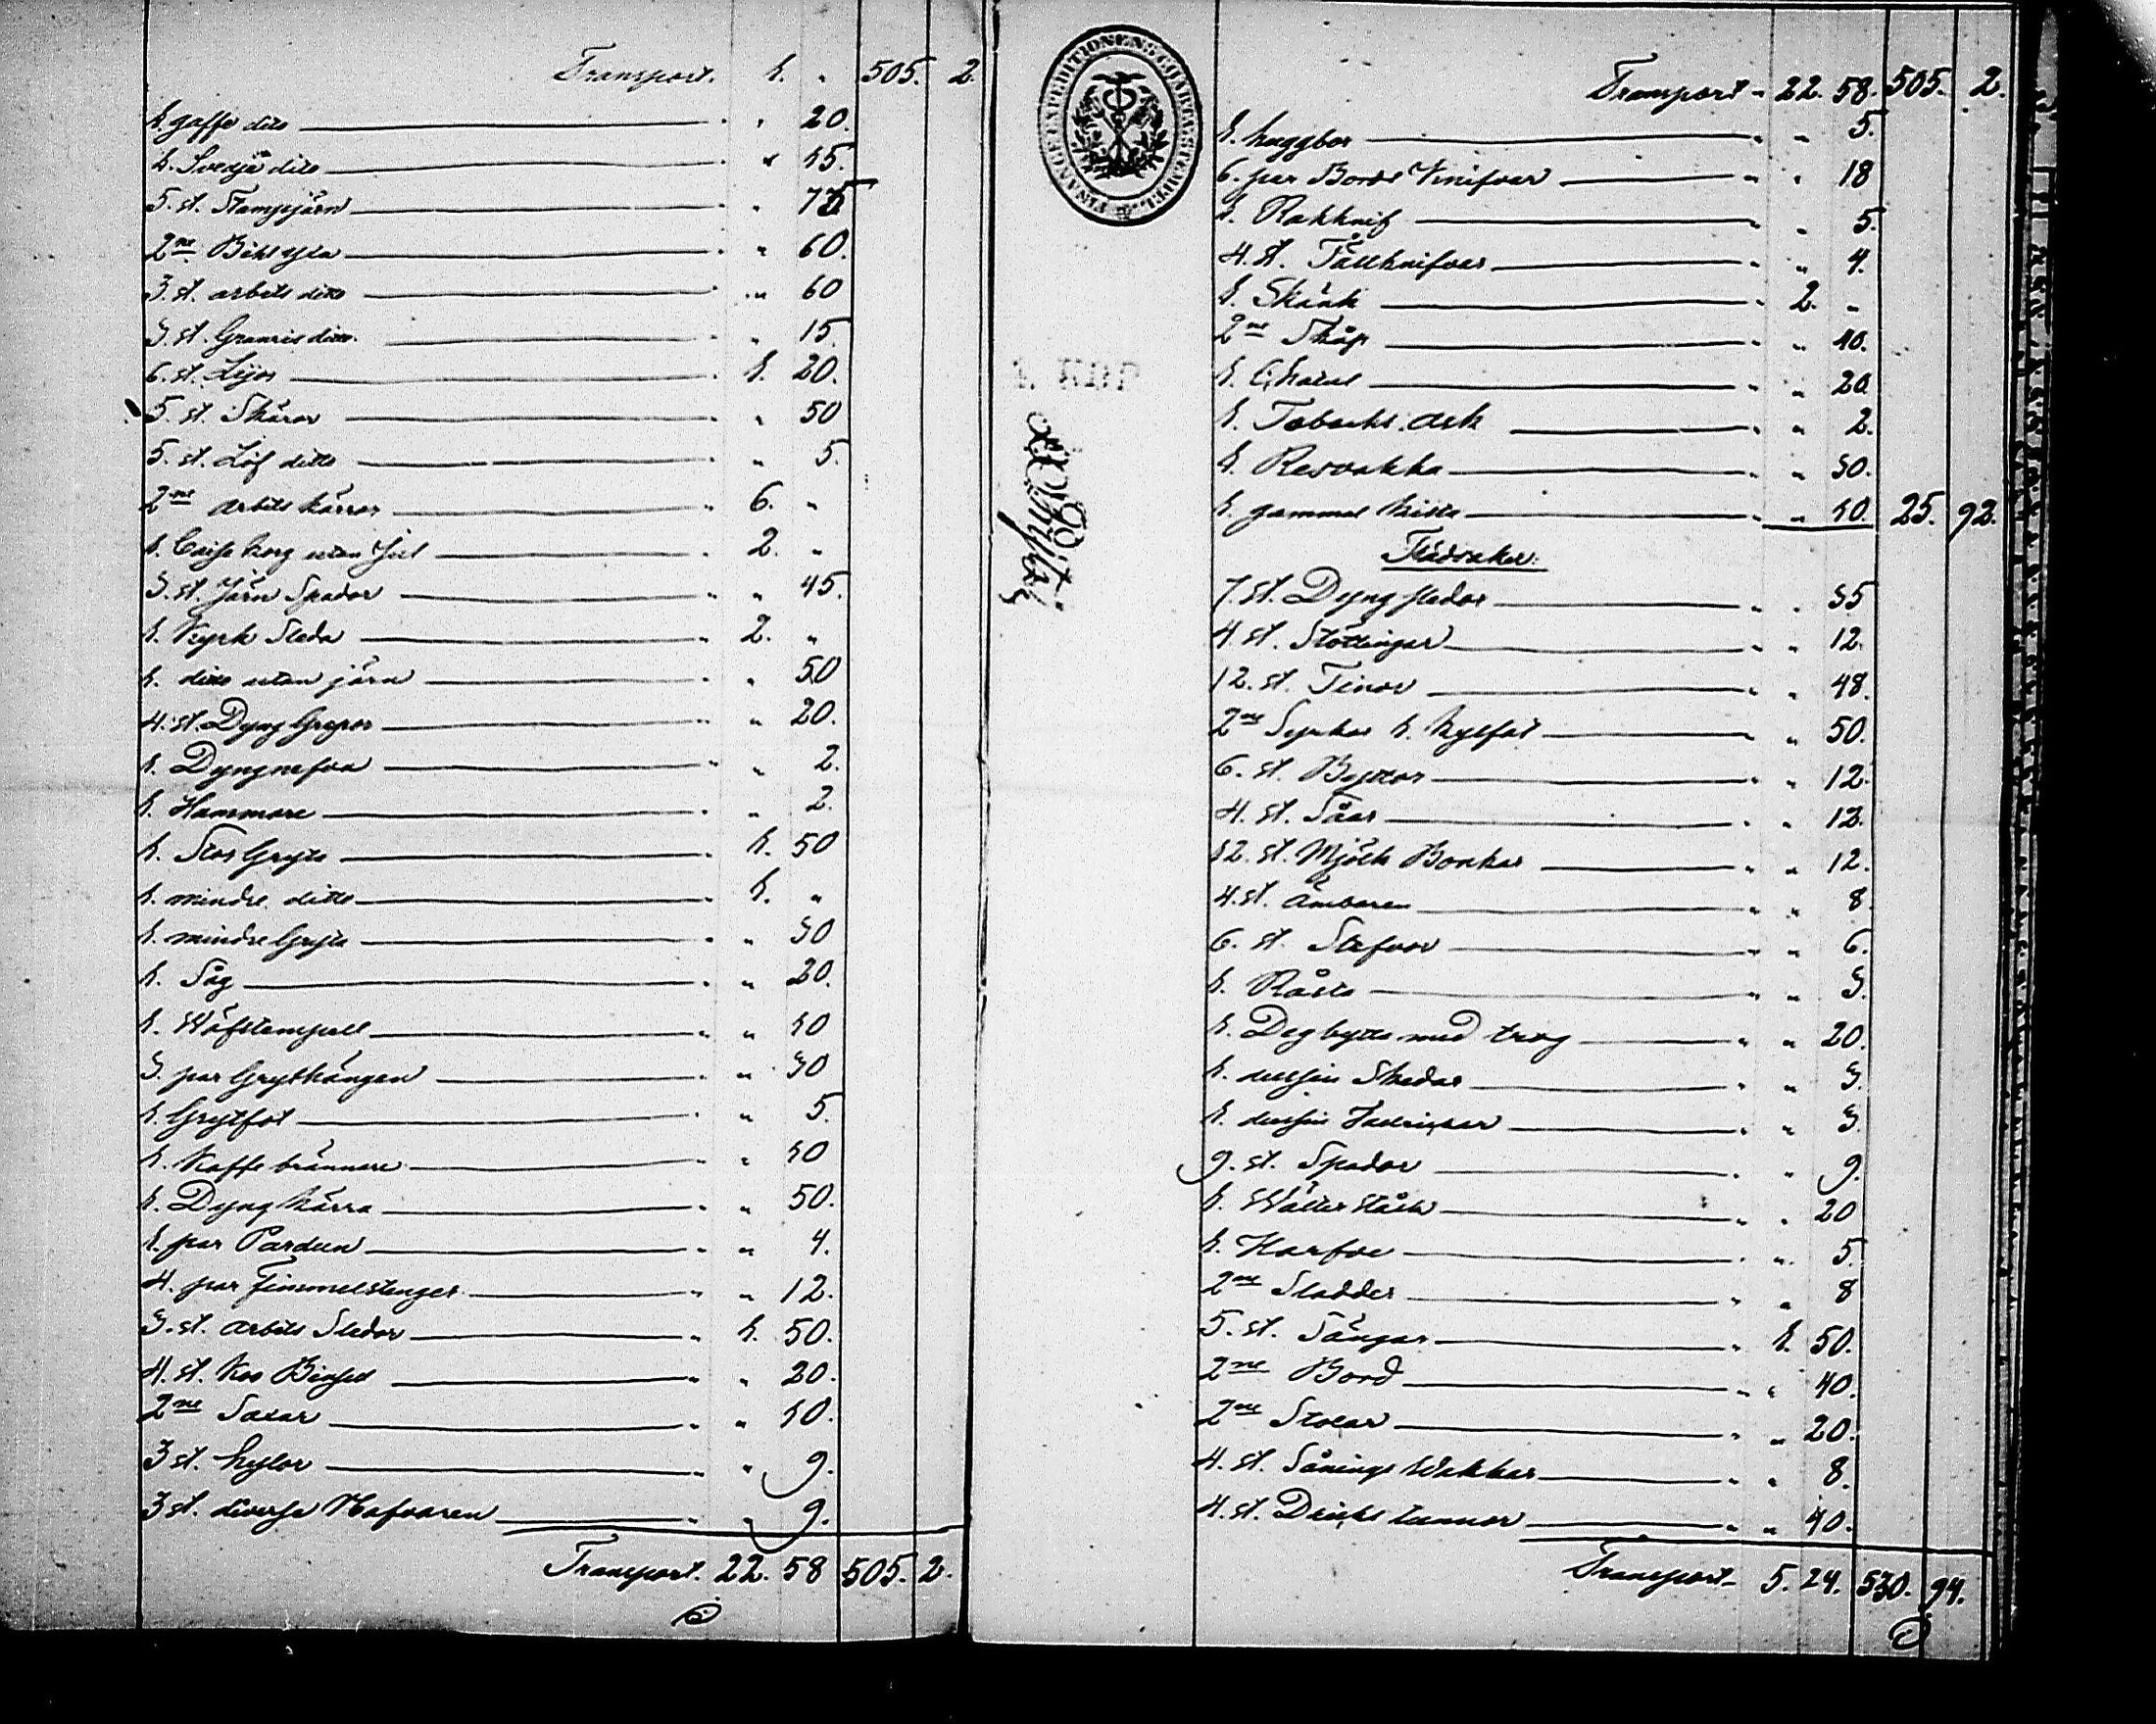 Transport. 1. " 505. 2
1. gaffe dito " " 20.
1. Svedja dito " " 15.
5. st. Stampjärn " 75
2ne Bihl yxa " 60.
3. st. arbets ditto " 60
3. st. Granris ditto " 15
6. st. Lijor 1. 20.
5. st. Skäror " 50
5. st. Löf ditto " 5.
2ne arbets kärror 6. "
1. korg utan 2. "
3. st. Järn Spador " 45.
1. Kyrk Släda 2. "
1. ditto utan järn " 50
4. st. Dyng Grepor " 20.
1. Dyngnefva " 2.
1. Hammare " 2.
1. Stor Gryta 1. 50
1. mindre ditto 1. "
1. mindre Gryta " 30
1. Såg " 20.
1. " 10
3. par Grythängen " 30
1. Grytfot " 5.
1. Kaffe brännare " 10
1. Dyng kärra " 50.
1. par Pardun " 4.
4. par Fimmelstenger " 12.
3. st. arbets Slädor 1. 50.
4. st. Koo Bindsel " 20.
2ne Saxar " 10.
3 st. hylor " 9.
3 st. diverse Nafvaren " 9.
Transport. 22. 58 505. 2.
FINANCE EXPEDITIONENS CHARTÆ STEMPEL
Transport " 22. 58. 505. 2.
1. huggbor " " 5.
6. par Bords Knifvar " " 18
1. Rakknif " " 5.
4. st. Fällknifvar " " 4.
1. Skänk 2. "
2ne Skåp " 40.
1. Chatul " 20
1. Tobaks. ask " " 2.
1. Resvakka " " 30.
1. gammal kista " " 10. 25. 92.
Trädsaker.
7. st. Dyng slädor " " 35
4. st. Stöttingar " " 12.
12. st. Tinor " " 48.
2ne 1. kylfat " 50.
6. st. Byttor " " 12.
4. st. Såar " " 12.
12. st. Mjölk Bonkar " " 12.
4. st. Ämbaren " " 8
6. st. Stefvor " " 6.
1. Råsta " " 3.
1. Deg bytta med trog " " 20.
1. dussin Skedar " " 3.
1. dussin Tallrickar " " 3.
9. st. Spador " " 9.
1. " " 20
1. Harfve " " 5.
2ne Sladder " " 8
5. st. Sängar 1. 50.
2ne Bord " " 40.
2ne Stolar " " 20.
4. st. Sånings Wakkar " " 8.
4. st. Dricks tunnor " " 40.
Transport 5. 24. 530. 94.